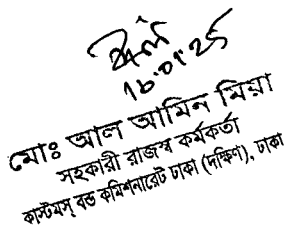 ১৮.০১.২৫
মোঃ আল আমিন মিয়া
সহকারী রাজস্ব কর্মকর্তা
কাস্টমস্ বন্ড কমিশনারেট ঢাকা (দক্ষিণ), ঢাকা